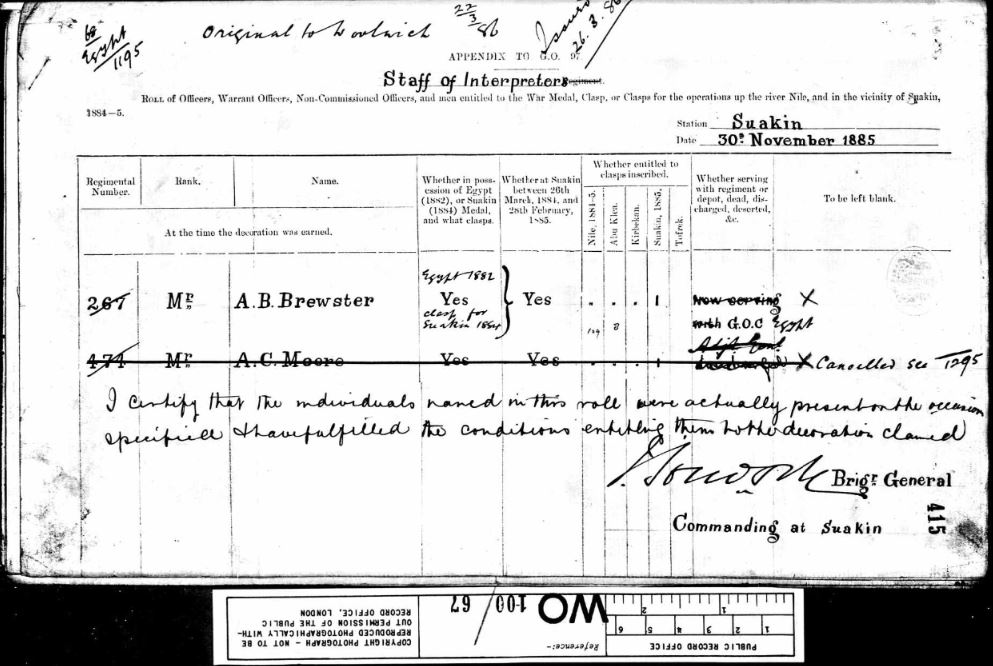 68
Egypt
1195
Original to Woolwich
22/3/86
Issued
26.3.86
APPENDIX TO G.O. 97
Staff of Interpreters Regiment.
ROLL of Officers, Warrant Officers, Non-Commissioned Officers, and men entitled to the War Medal, Clasp, or Clasps for the operations up the river Nile, and in the vicinity of Suakin,
1884—5.
Station Suakin
Date 30th November 1885
Regimental Number.
Rank.
Name.
At the time the decoration was earned.
Whether in possession of Egypt (1882), or Suakin (1884) Medal, and what clasps.
Whether at Suakin between 26th March, 1884, and 28th February, 1885.
Whether entitled to clasps inscribed.
Nile, 1884-5.
Abu Klea.
Kirbekan.
Suakin, 1885.
Tofrek.
Whether serving with regiment or depot, dead, discharged, deserted, &c.
To be left blank.
267 Mr. A.B. Brewster Egypt 1882 Yes clasp for Suakin 1884 } Yes . . . 1 Now serving X
with G.O.C Egypt
474 Mr. A.C. Moore Yes Yes . . . 1 X Cancelled see 1295
I certify that the individuals named in this roll were actually present on the occasion
specified & have fulfilled the conditions entitling them to the decoration claimed
Brigr. General
Commanding at Suakin
415
PUBLIC RECORD OFFICE
1 2 3 4 5 6
1 2
Reference:-
WO 100/67
COPYRIGHT PHOTOGRAPH - NOT TO BE
REPRODUCED PHOTOGRAPHICALLY WITH-
OUT PERMISSION OF THE PUBLIC
RECORD OFFICE, LONDON